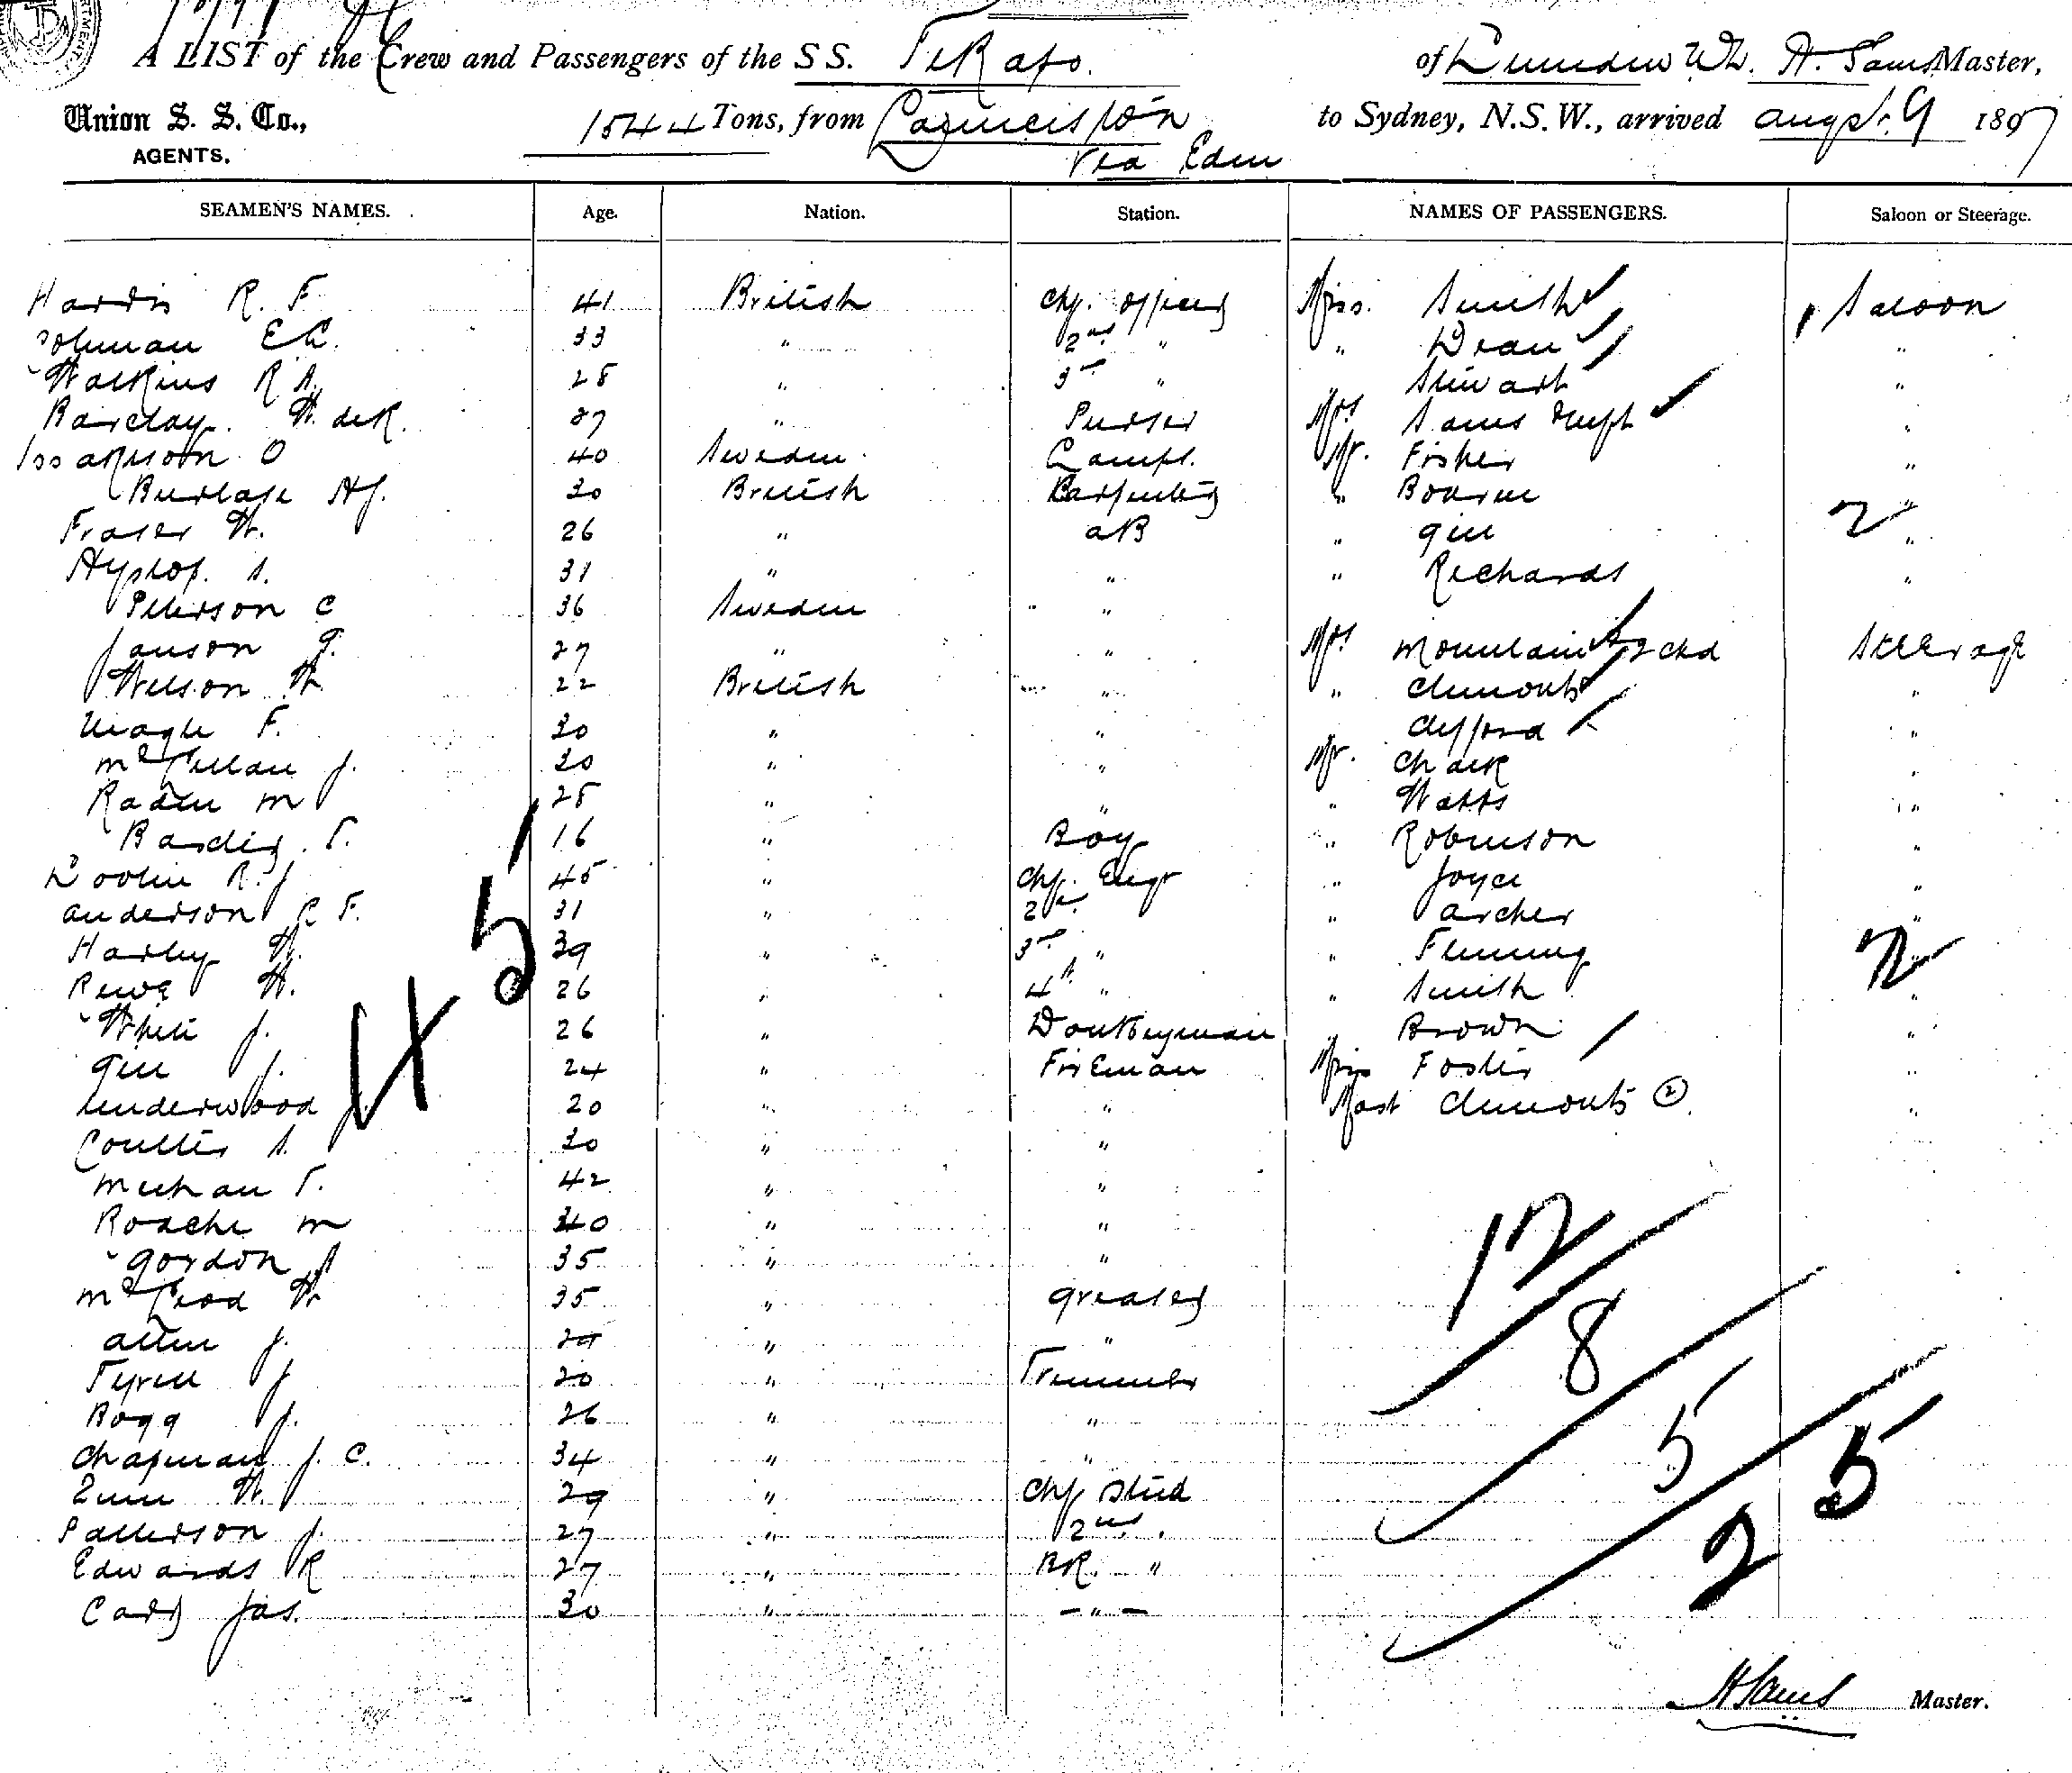 A LIST of the Crew and Passengers of the SS. TeKapo. of Dunedin W. H. Sams Master,
Union S. S. Co., 1544 Tons, from Launceston to Sydney, N.S.W., arrived Augst. 9 1897
AGENTS. via Eden
SEAMEN'S NAMES. Age. Nation. Station. NAMES OF PASSENGERS. Saloon or Steerage.
Harris R. F. 41 British Chf. Officer Miss. Smith Saloon
Colman E C. 33 " 2nd " " Dean "
Watkins R A. 28 " 3rd " " Stewart "
Barclay. W. deK. 27 " Purser Mrs Sams "
Issakson O 40 Sweden Lampt. Mr. Fisher "
Burlase HJ. 30 British Carpenter " Bourne "
Fraser W. 26 " AB " Gill "
Hyslop. A. 31 " " " Richards "
Peterson C 36 Sweden "
Janson G. 27 " " Mrs Mountain & 2 chd Steerage
Wilson W 22 British " " Clemonts "
Neagle F. 30 " " Clifford "
McLellan J. 30 " " Mr. Chalk "
Raden M 25 " " " Watts "
Bardig. T. 16 " Boy " Robinson "
Doolin R. J 45 " Chf. Engr " Joyce "
Anderson C F. 31 " 2nd " Archer "
Harley W. 39 " 3rd " " Fleming "
Rewe W. 26 " 4th " " Smith "
White J. 26 " Donkeyman " Brown "
Gill J. 24 " Fireman Miss Foster "
Underwood J. 20 " " Mast Clemonts (2) "
Coulter A. 30 " "
Meehan T. 42 " "
Roache M 40 " "
Gordon A 35 " "
McLeod W 35 " Greaser
Allen J. 29 " "
Tyrell J 20 " Trimmer
Bogg J. 26 " "
Chapman J. C. 34 " "
Dunn W. 29 " Chf Stwd
Patterson J. 27 " 2nd "
Edwards R 27 " BR. "
Carr Jas. 30 " - " -
45
12
8
5
25
H Sams Master.